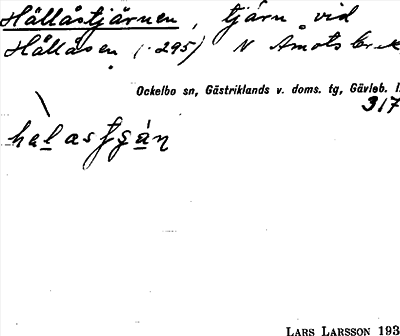 Hällåstjärnen, tjärn vid
Hållåsen (.295) N Åmots br-k
Ockelbo sn, Gästriklands v. doms. tg, Gävleb. l.
317
LARS LARSSON 193